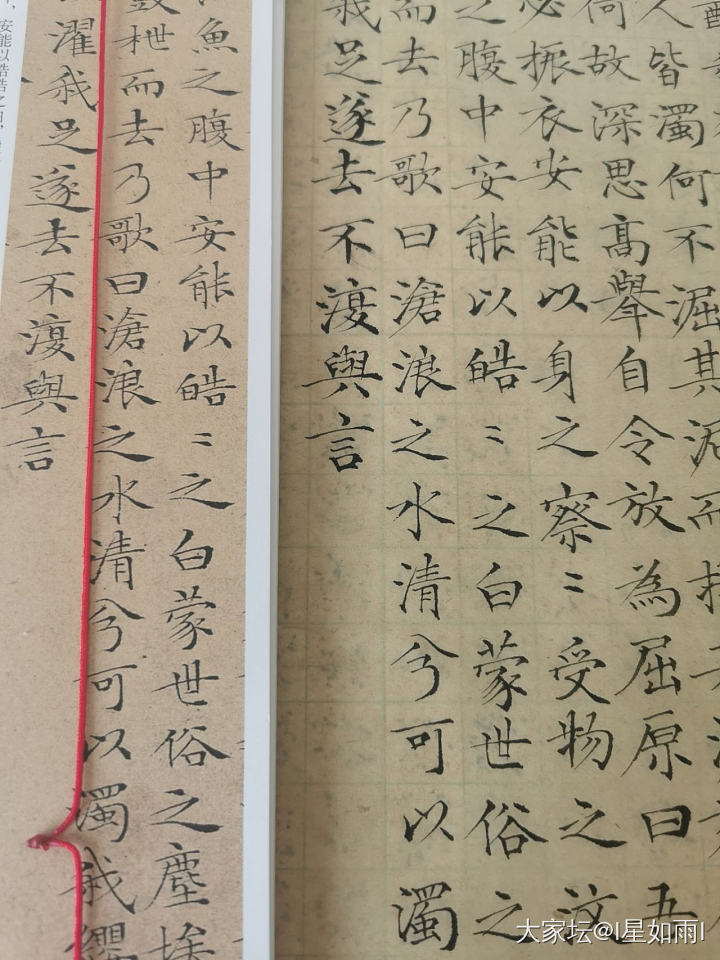 人皆濁何不淈其泥而
何故深思高舉自令放為屈原曰吾
必振衣安能以身之察〻受物之汶
之腹中安能以皓〻之白蒙世俗之
而去乃歌曰滄浪之水清兮可以濁
我足遂去不復與言
魚之腹中安能以皓〻之白蒙世俗之塵埃
鼓枻而去乃歌曰滄浪之水清兮可以濁我纓
濯我足遂去不復與言
安能以皓皓之白，
大家坛@l星如雨l